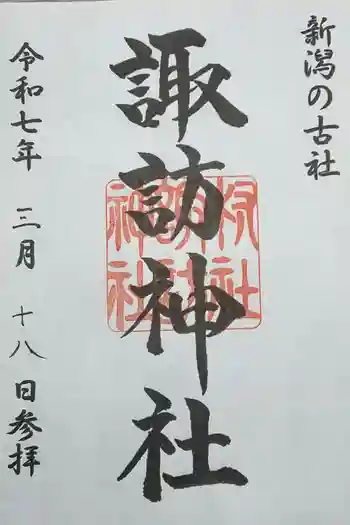 新潟の古社
諏訪神社
令和七年 三月 十八日参拝